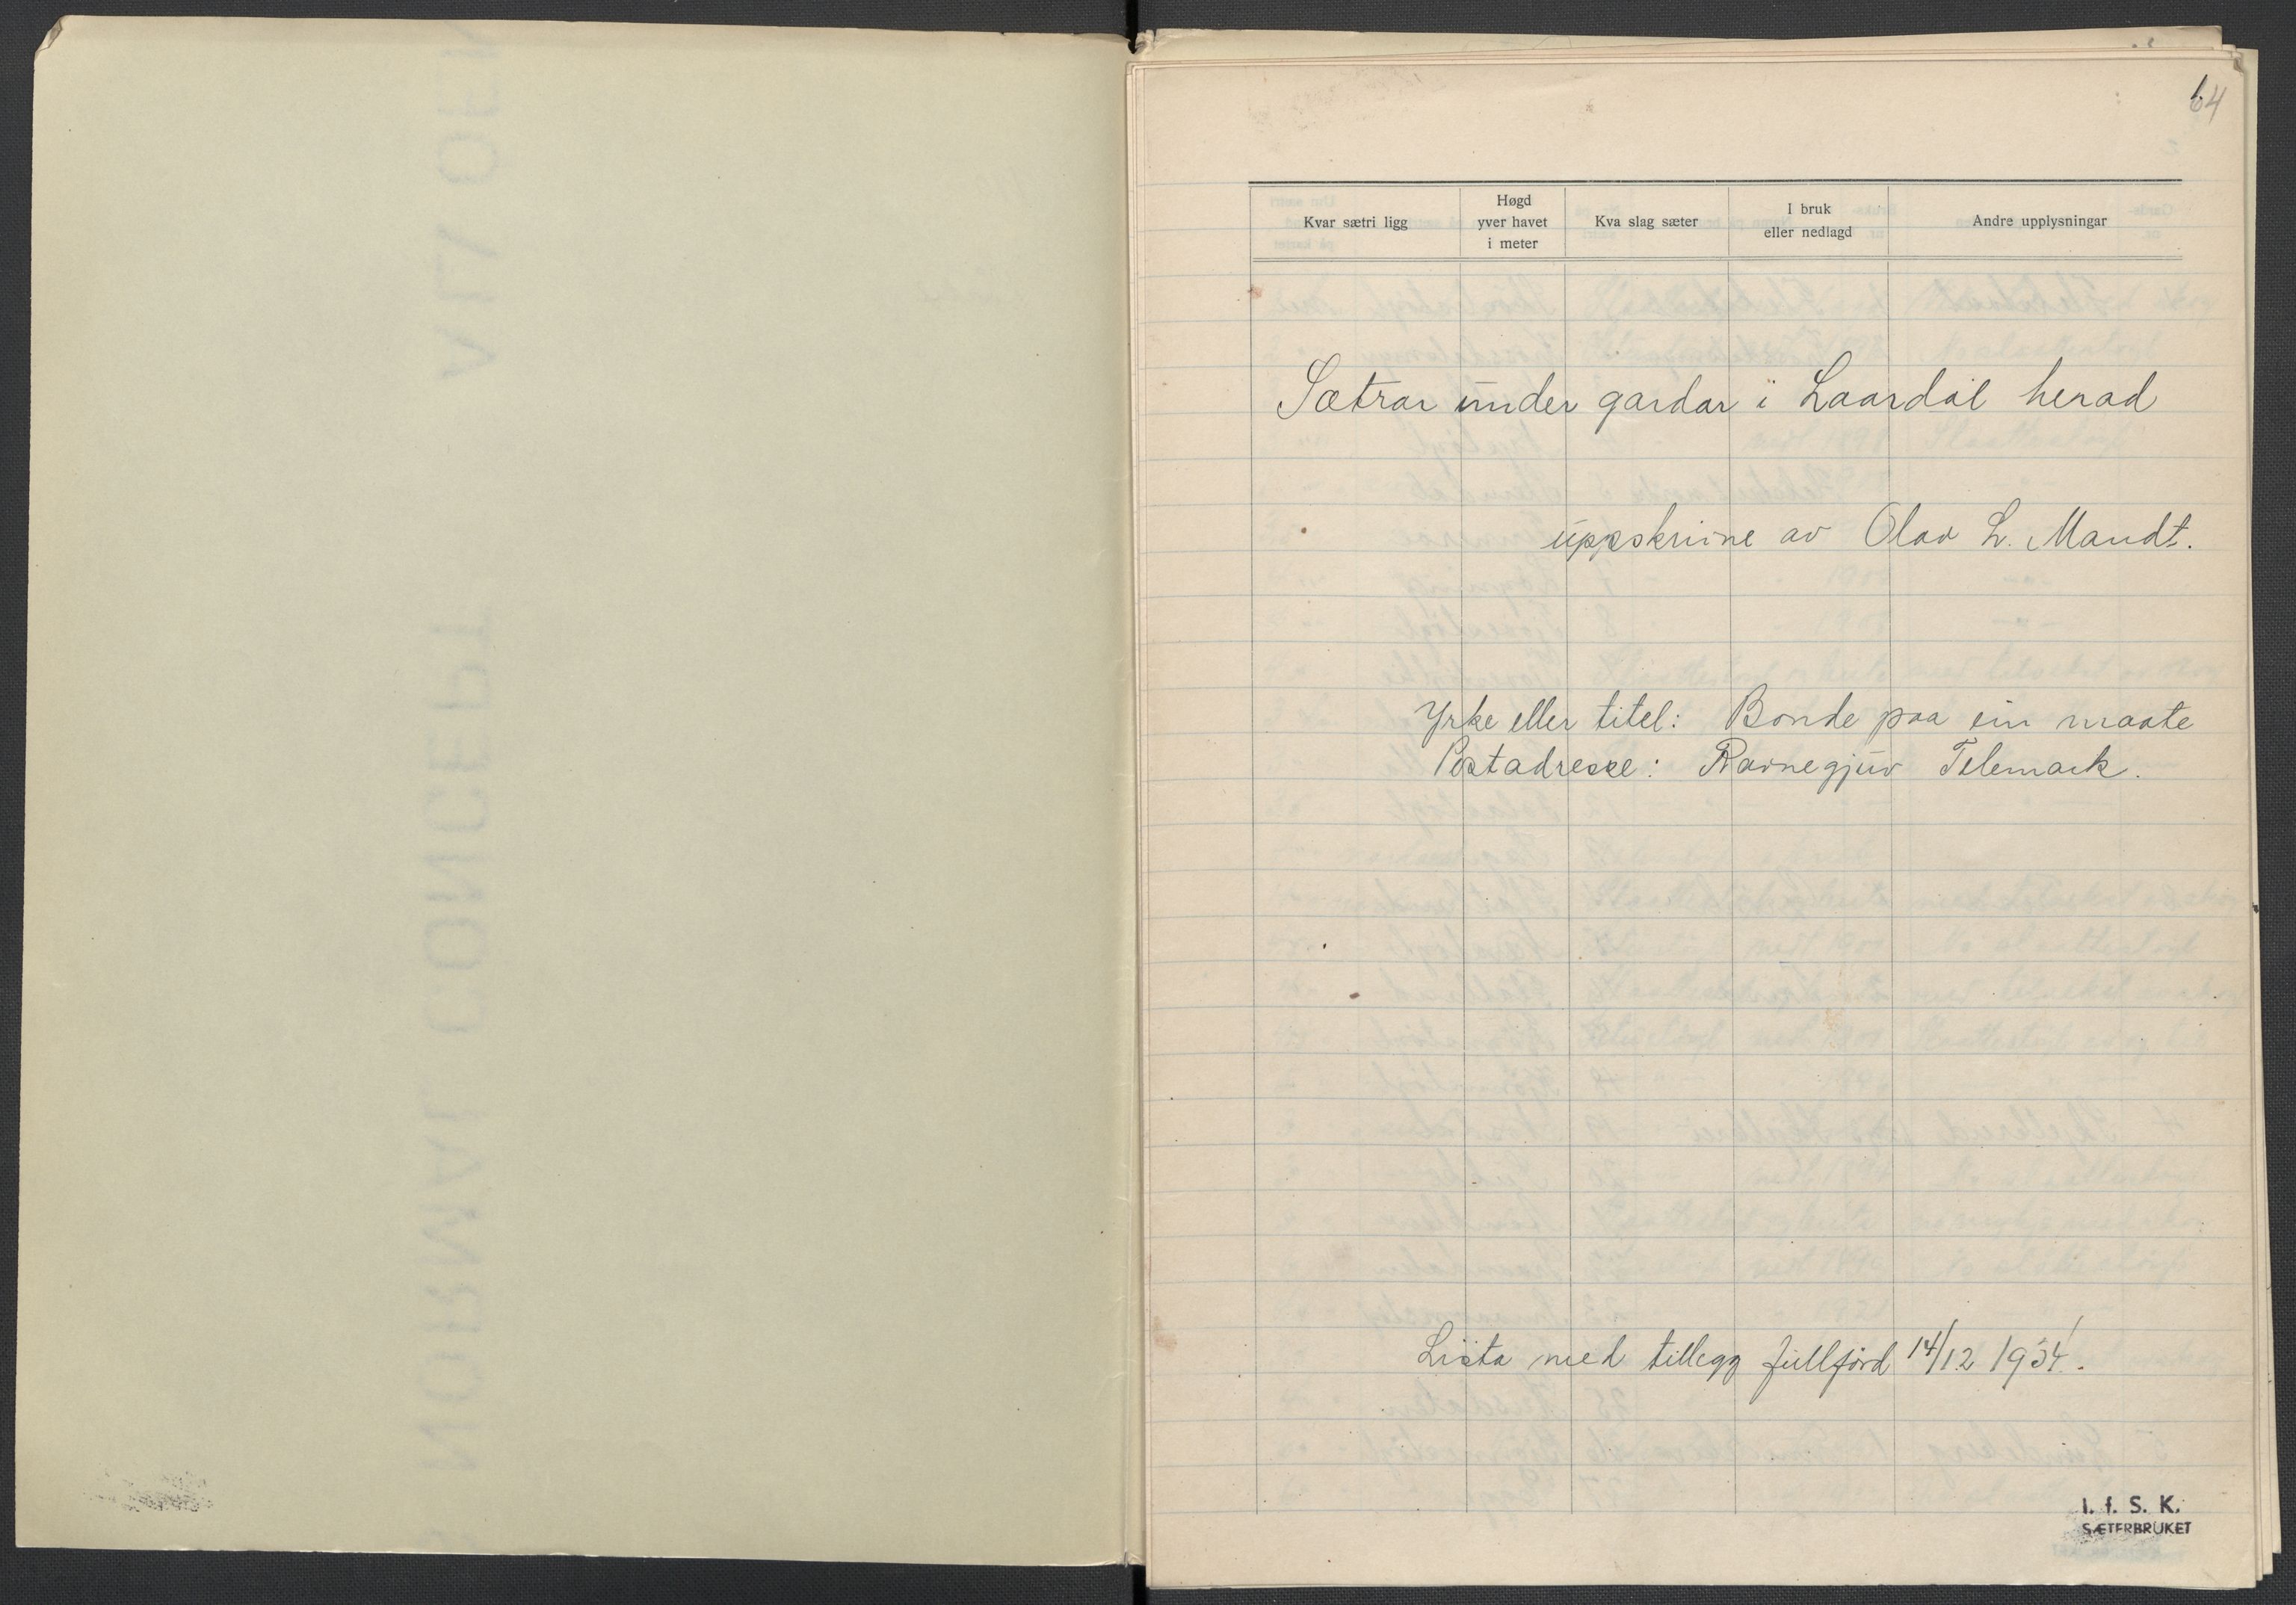 64
Kvar sætri ligg
Høgd
yver havet
i meter
Kva slag sæter
I bruk
eller nedlagd
Andre upplysningar
Sætrar under gardar i Laardal herad
uppskrivne av Olav L. Mandt.
Yrke eller titel: Bonde paa ein maate
Postadresse: Ravnegjuv Telemark.
Lista med tillegg fullförd 14/12 1934.
I. f. S. K.
SÆTERBRUKET